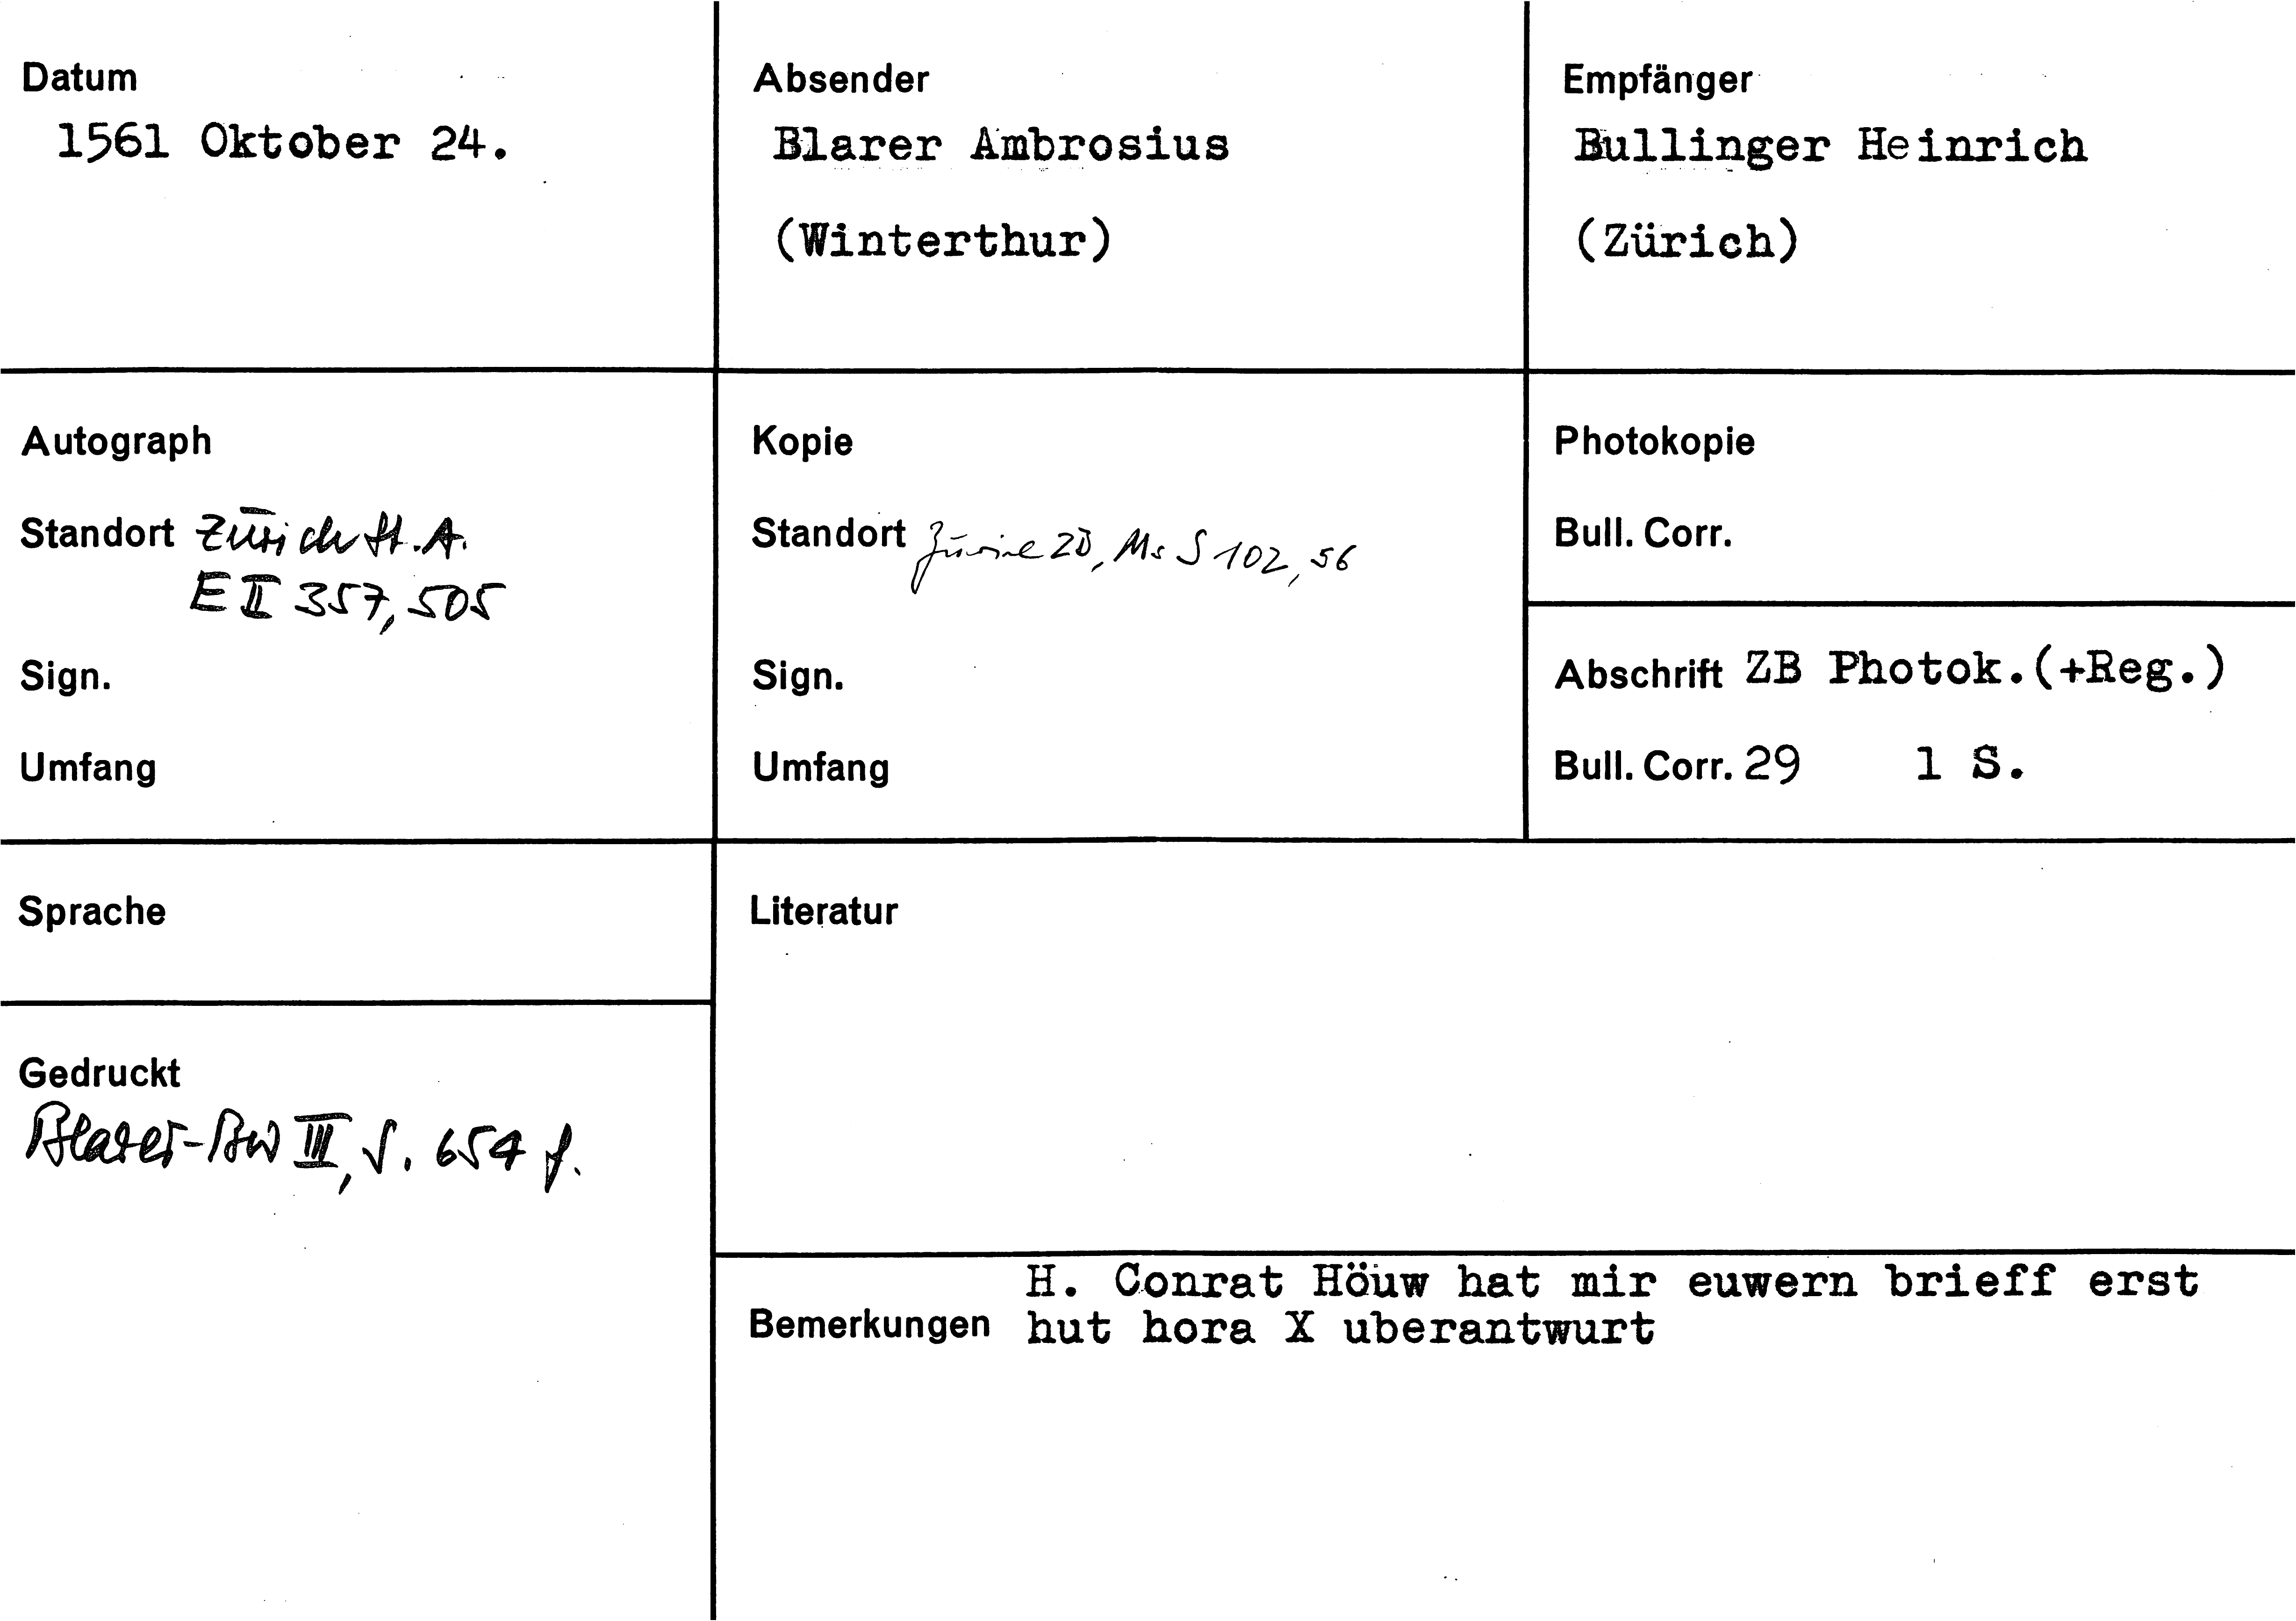 Datum
1561 Oktober 24.
Absender
Blarer Ambrosius
(Winterthur)
Empfänger
Bullinger Heinrich
(Zürich)
Autograph
Standort Zürich St.A.
E II 357, 505
Sign.
Umfang
Kopie
Standort Zürich ZB, Ms S 102, 56
Sign.
Umfang
Photokopie
Bull. Corr.
Abschrift ZB Photok.(+Reg.)
Bull. Corr. 29 1 S.
Sprache
Literatur
Gedruckt
Blarer-Bw III, S. 654 f.
H. Conrat Höuw hat mir euwern brieff erst
Bemerkungen hut hora X uberantwurt